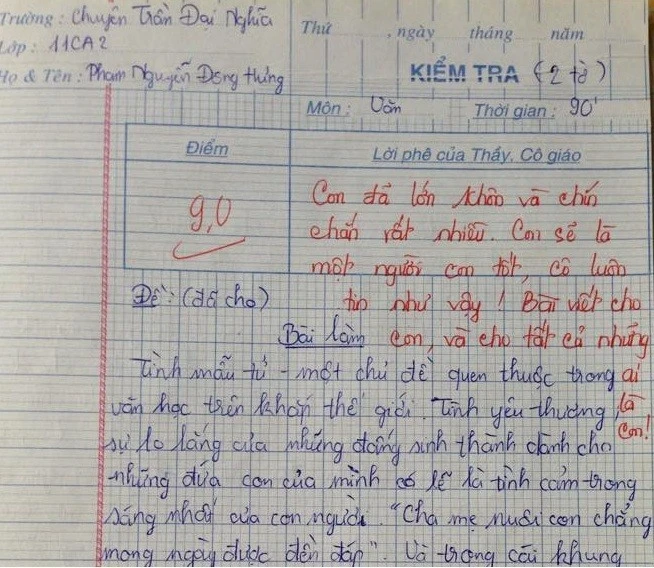 Trường: Chuyên Trần Đại Nghĩa
Lớp: 11CA2
Họ & Tên: Phạm Nguyễn Đông Hưng
Thứ , ngày tháng năm
KIỂM TRA (2 tờ)
Môn: Văn Thời gian: 90'
Điểm
Lời phê của Thầy, Cô giáo
9,0
Con đã lớn khôn và chín
chắn rất nhiều. Con sẽ là
một người con tốt, cô luôn
tin như vậy! Bài viết cho
con, và cho tất cả những
ai
là
con!
Đề: (đã cho)
Bài làm
Tình mẫu tử - một chủ đề quen thuộc trong
văn học trên khắp thế giới. Tình yêu thương,
sự lo lắng của những đấng sinh thành dành cho
những đứa con của mình có lẽ là tình cảm trong
sáng nhất của con người. "Cha mẹ nuôi con chẳng
mong ngày được đền đáp". Và trong cái khung